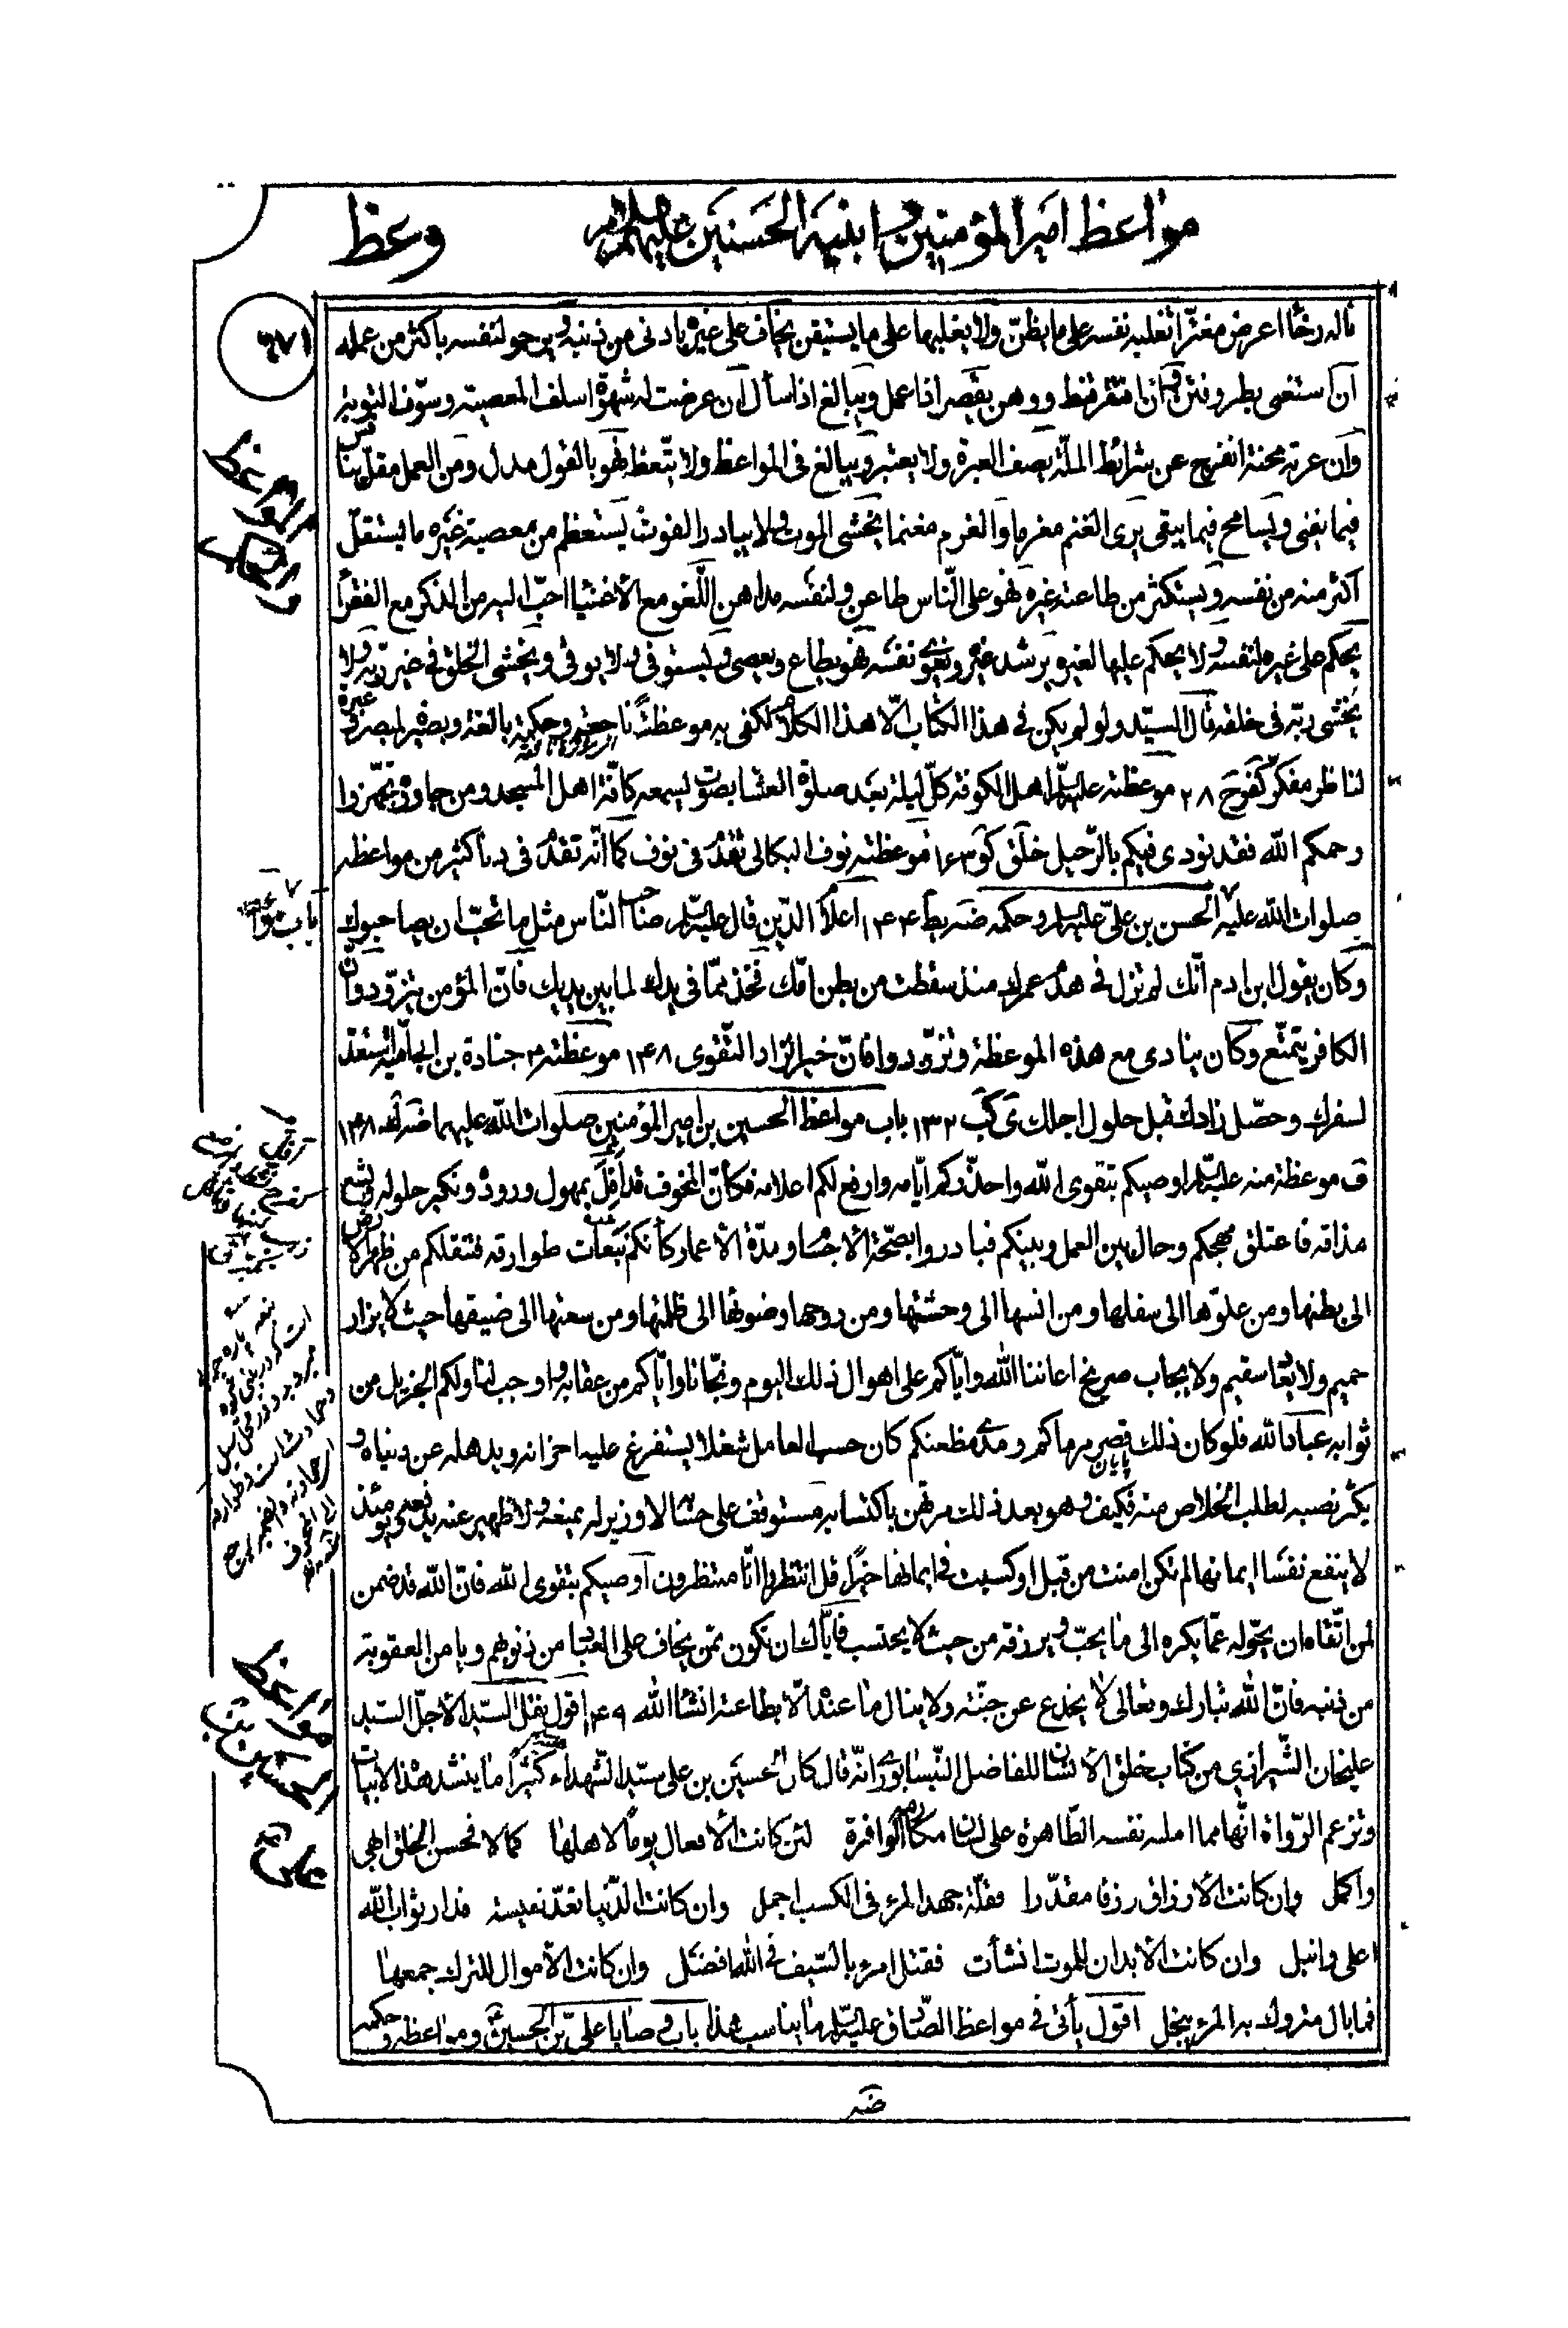 مواعظ امير المؤمنين و ابنيه الحسنين عليهم السلام
وعظ
٦٧١
ناله رخأ اعرض مغترّا تغلبه نفسه على ما يظنّ ولا يغلبها على ما يستيقن يخاف على غيره بادنى من ذنبه ويرجو لنفسه باكثر من عمله
ان ستغنى بطر وفتن وان افتقر قنط ووهن يقصر اذا عمل ويبالغ اذا سأل ان عرضت له شهوة اسلف المعصية وسوّف التوبة
وان عرته محنة انفرج عن شرائط الملّة يصف العبرة ولا يعتبر ويبالغ فى المواعظ ولا يتّعظ فهو بالقول مدل ومن العمل مقلّ ينافس
فيما يفنى ويسامح فيما يبقى يرى الغنم مغرما والغرم مغنما يخشى الموت ولا يبادر الفوت يستعظم من معصية غيره ما يستقلّ
اكثر منه من نفسه ويستكثر من طاعته غيره فهو على النّاس طاعن ولنفسه مداهن اللّغو مع الأغنيا احبّ اليه من الذكر مع الفقرأ
يحكم على غيره لنفسه ولا يحكم عليها لغيره يرشد غيره ويغوى نفسه فهو يطاع ويعصى ويستوفى ولا يوفى ويخشى الخلق فى غير ربّه ولا
يخشى ربّه فى خلقه قال السيّد ولو لم يكن فى هذا الكتاب الّا هذا الكلام لكفى به موعظة ناجعة وحكمة بالغة وبصيرة لمبصر وعبرة
لناظر مفكّر كفوح ٢٨ موعظته عليه السلام اهل الكوفة كلّ ليلة بعد صلوة العشا بصوت يسمعه كافّة اهل المسجد ومن جاوره تجهّزوا
رحمكم الله فقد نودى فيكم بالرّحيل خلق كو ١٤٣ موعظته نوف البكالى تقدّم فى نوف كما انّه تقدّم فى دنا كثير من مواعظه
صلوات الله عليه الحسن بن علىّ عليه السلام وحكمه ضه يط ١٤٤ اعلام الدّين قال عليه السلام صاحب النّاس مثل ما تحبّ ان يصاحبوك
وكان يقول ابن ادم انّك لم تزل فى هدم عمرك منذ سقطت من بطن امّك فخذ ممّا فى يدك لما بين يديك فانّ المؤمن يتزوّد وانّ
الكافر يتمتّع وكان ينادى مع هذه الموعظة وتزوّدوا فانّ خير الزاد التّقوى ١٤٨ موعظته جنادة بن ابى اميّة استعدّ
لسفرك وحصّل زادك قبل حلول اجلك ى كب ١٣٢ باب مواعظ الحسين بن امير المؤمنين صلوات الله عليهما ضه ١٤٨
ف موعظة منه عليه السلام اوصيكم بتقوى الله واحذّركم ايّامه وارفع لكم اعلامه فكأنّ المخوف قد افل بمهول وروده ونكير حلوله وبشع
مذاقه فاعتلق مهجكم وحال بين العمل وبينكم فبادروا بصحّة الاجسا ومدّة الأعمار كأنكم ببغتات طوارقه فتنقلكم من ظهر الارض
الى بطنها ومن علوّها الى سفلها ومن انسها الى وحشتها ومن روحها وضوئها الى ظلمتها ومن سعتها الى ضيقها حيث لا يزار
حميم ولا يعاد سقيم ولا يجاب صريخ اعاننا الله وايّاكم على اهوال ذلك اليوم ونجّانا وايّاكم من عقابه واوجب لنا ولكم الجزيل من
ثوابه عباد الله فلو كان ذلك قصر مرماكم ومدى مظعنكم كان حسب العامل شغلا يستفرغ عليه احزانه ويذهله عن دنياه و
يكثر نصبه لطلب الخلاص منه فكيف وهو بعد ذلك مرتهن باكتسابه مستوقف على حسابه لا وزير له يمنعه ولا ظهير عنه يدفعه ويومئذ
لا ينفع نفسا ايمانها لم تكن امنت من قبل او كسبت فى ايمانها خيرا قل انتظروا انّا منتظرون اوصيكم بتقوى الله فانّ الله قد ضمن
لمن اتّقاه ان يحوّله عمّا يكره الى ما يحبّ ويرزقه من حيث لا يحتسب فايّاك ان تكون ممّن يخاف على العباد من ذنوبهم ويامن العقوبة
من ذنبه فانّ الله تبارك وتعالى لا يخدع عن جنّته ولا ينال ما عنده الّا بطاعته انشأ الله ١٤٩ اقول نقل السيّد الأجلّ السيّد
عليخان الشّيرازى من كتاب خلق الأنسان للفاضل النّيسابورى انّه قال كان الحسين بن على سيّد الشّهداء كثيرا ما ينشد هذه الابيات
وتزعم الرّواة انّها مما املته نفسه الطّاهرة على لسان مكارمه الوافرة لئن كانت الأفعال يوما لاهلها كمالا فحسن الخلق ابهى
واكمل وان كانت الأرزاق رزقا مقدّرا فقلّة جهد المرء فى الكسب اجمل وان كانت الدّنيا تعدّ نفيسة فدار ثواب الله
اعلى وانبل وان كانت الأبدان للموت انشأت فقتل امرء بالسّيف فى الله افضل وان كانت الأموال للترك جمعها
فما بال متروك به المرء يبخل اقول يأتى فى مواعظ الصّادق عليه السلام ما يناسب هذا باب وصايا علىّ بن الحسين ومواعظه وحكمه
ضه